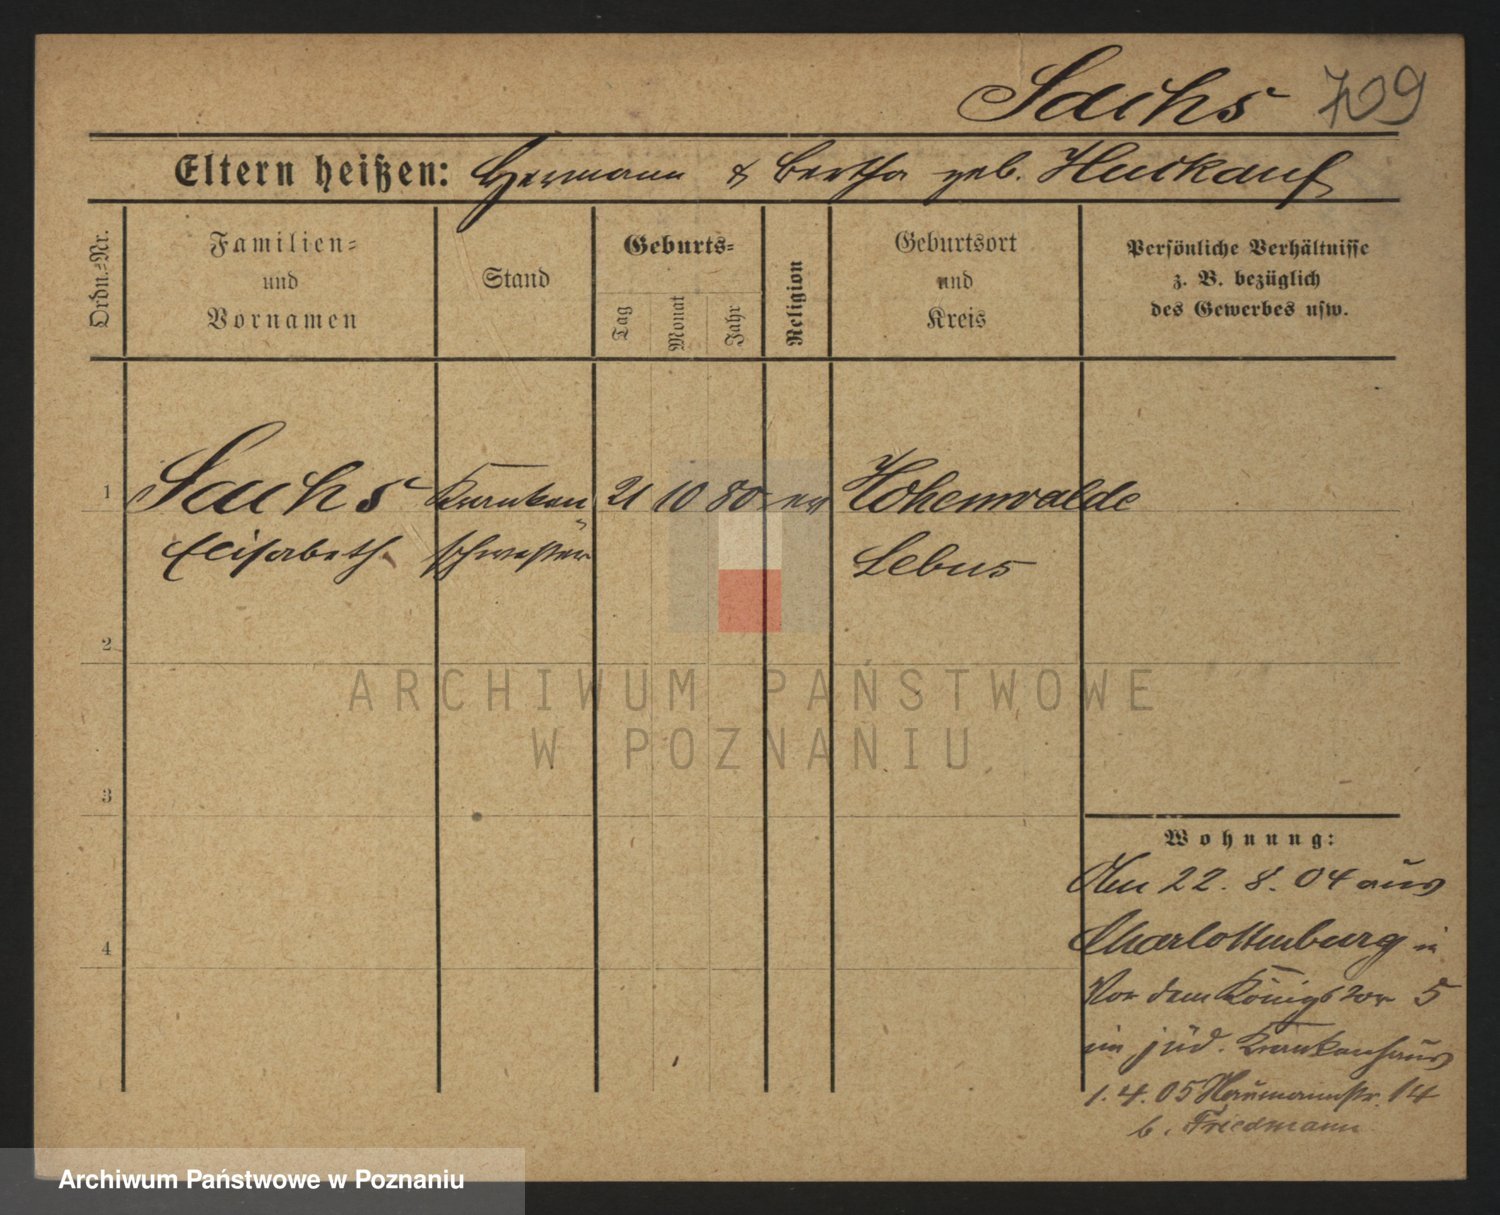 Sachs 709
Eltern heißen: Hermann & Bertha geb. Huckauf
Ordn.=Nr.
Familien=
und
Vornamen
Stand
Geburts=
Tag
Monat
Jahr
Religion
Geburtsort
und
Kreis
Persönliche Verhältnisse
z. B. bezüglich
des Gewerbes usw.
1 Sachs Kranken 21 10 80 ev Hohenwalde
Elisabeth schwester Lebus
2
ARCHIWUM PAŃSTWOWE
W POZNANIU
3
4
Wohnung:
Am 22. 8. 04 aus
Charlottenburg in
Vor dem Königstor 5
im jüd. Krankenhaus
1. 4. 05 Naumannstr. 14
b. Friedmann
Archiwum Państwowe w Poznaniu